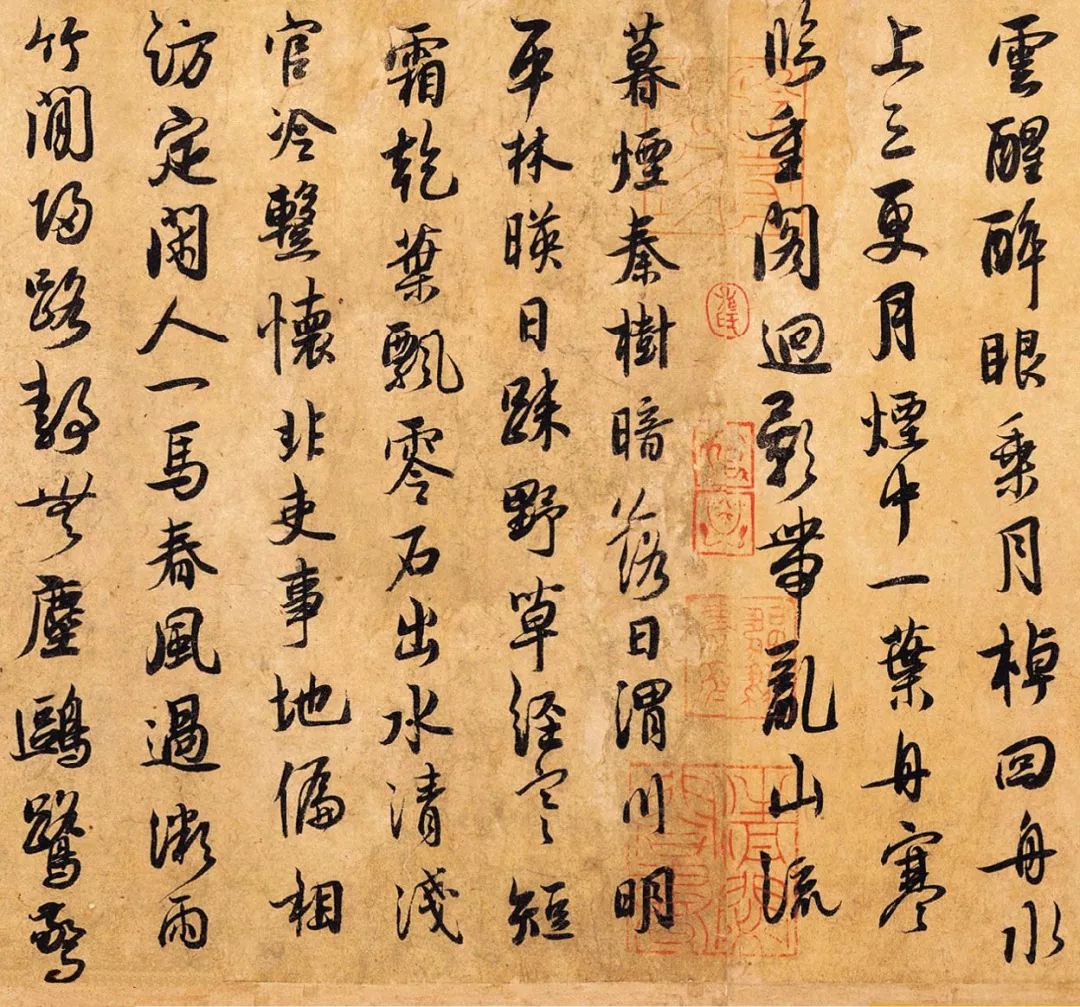 雲醒醉眼乘月棹回舟水
上三更月煙中一葉舟寒
臨重閣迥影帶亂山流
暮煙秦樹暗落日渭川明
平林暎日踈野草経寒短
霜乾葉飄零石出水清淺
官冷整懷非吏事地偏相
訪定閑人一馬春風過微雨
竹間歸路静無塵鷗鷺驚